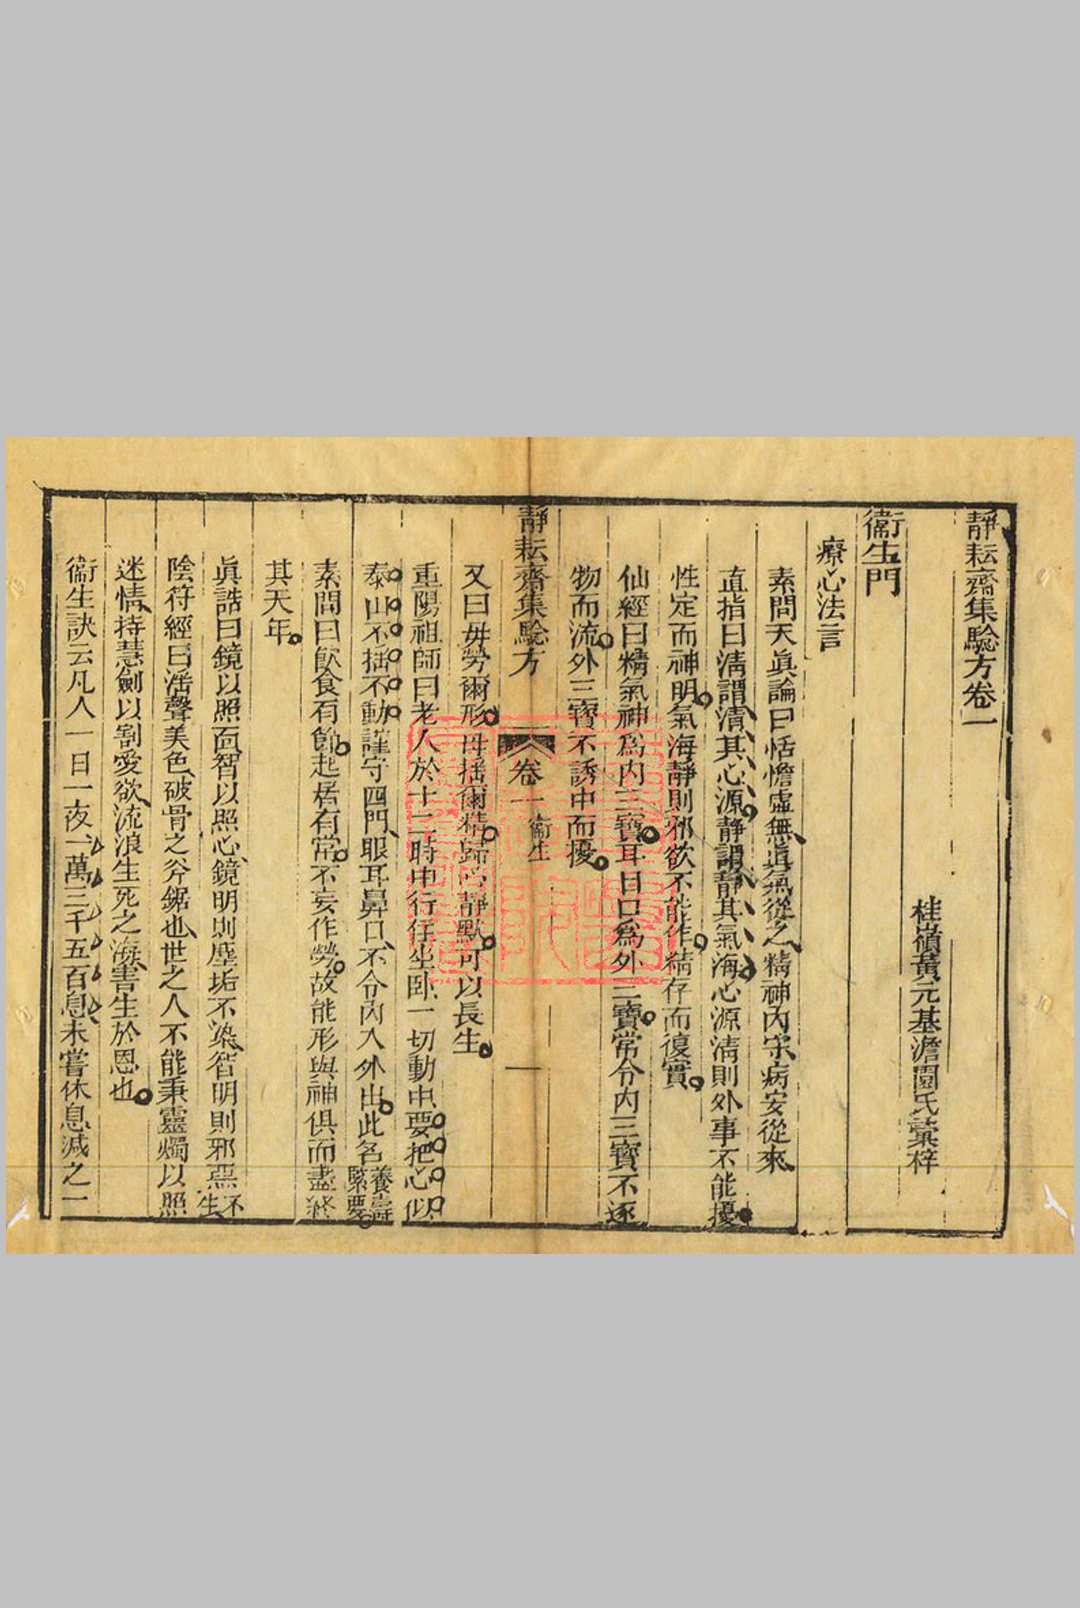 靜耘齋集驗方卷一
桂嶺黃元基澹園氏彙梓
衞生門
療心法言
素問天眞論曰恬憺虛無眞氣從之精神內守病安從來
直指曰淸謂清其心源靜謂靜其氣海心源淸則外事不能擾
性定而神明氣海靜則邪欲不能作精存而復實
仙經曰精氣神爲內三寶耳目口爲外三寶常令內三寶不逐
物而流外三寶不誘中而擾
靜耘齋集驗方
卷一 衞生
一
又曰毋勞爾形毋搖爾精歸心靜默可以長生
重陽祖師曰老人於十二時中行住坐臥一切動中要把心似
泰山不搖不動謹守四門眼耳鼻口不令內入外出此名養壽緊要
素問曰飮食有節起居有常不妄作勞故能形與神俱而盡終
其天年
眞誥曰鏡以照面智以照心鏡明則塵垢不染智明則邪惡不生
陰符經曰淫聲美色破骨之斧鋸也世之人不能秉靈燭以照
迷情持慧劍以割愛欲流浪生死之海害生於恩也
衞生訣云凡人一日一夜一萬三千五百息未嘗休息減之一